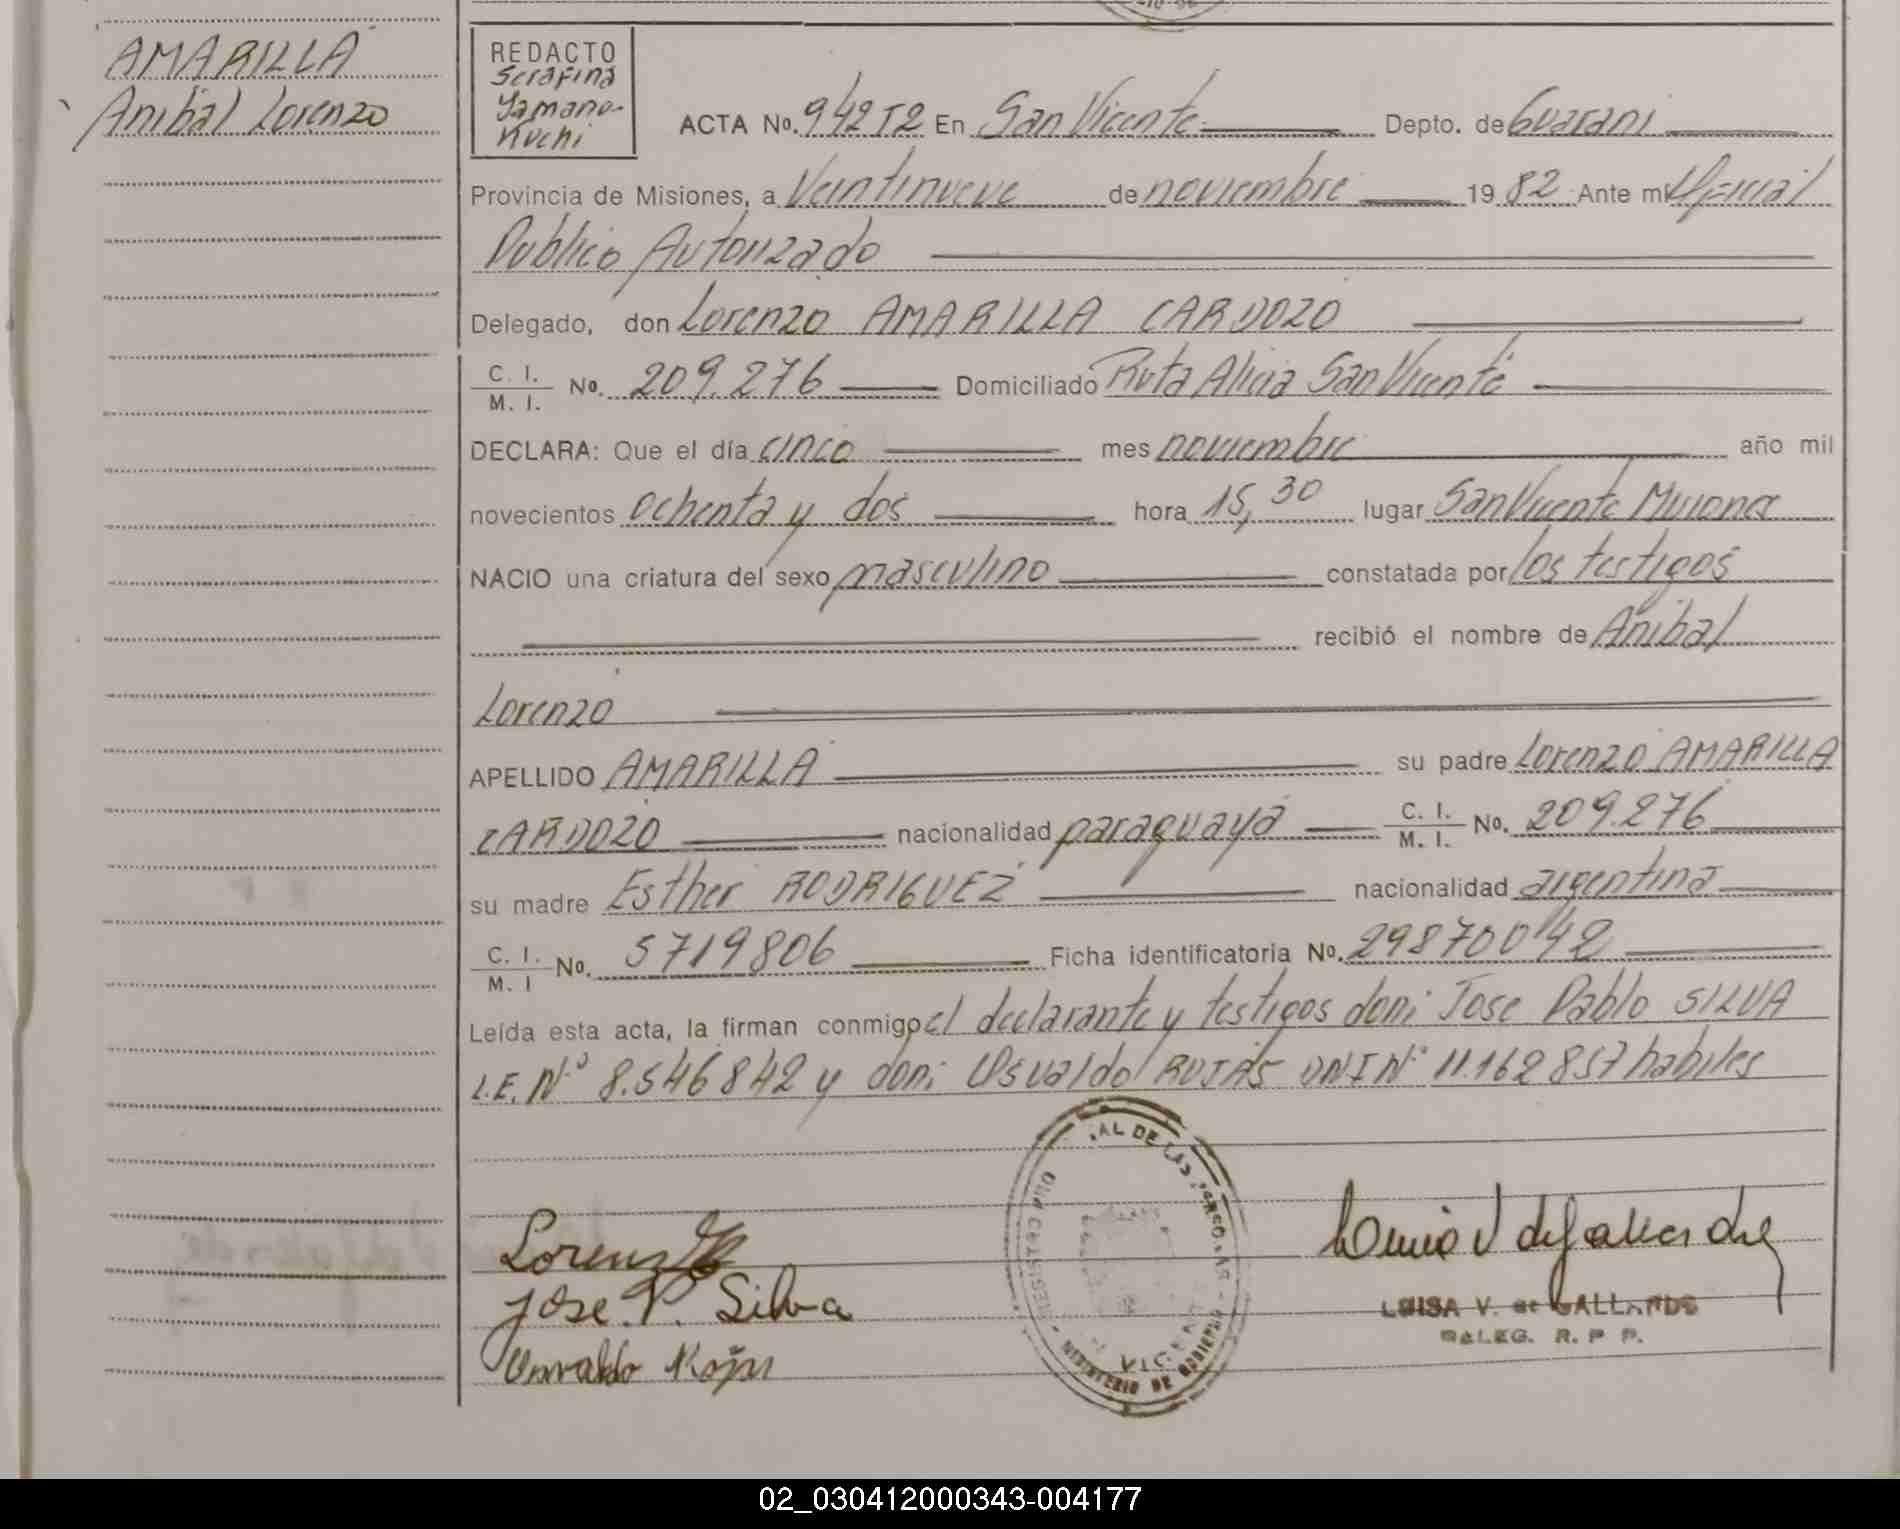 AMARILLA
Anibal Lorenzo
REDACTO
Serafina
Yamano-
Kuchi
ACTA No. 942 T2 En San Vicente Depto. de Guarani
Provincia de Misiones, a Veintinueve de noviembre 1982 Ante mi Oficial
Publico Autorizado
Delegado, don Lorenzo AMARILLA CARDOZO
C. I.
M. I. No. 209.276 Domiciliado Ruta Alicia San Vicente
DECLARA: Que el día cinco mes noviembre año mil
novecientos ochenta y dos hora 15,30 lugar San Vicente Misiones
NACIO una criatura del sexo masculino constatada por los testigos
recibió el nombre de Anibal
Lorenzo
APELLIDO AMARILLA su padre Lorenzo AMARILLA
CARDOZO nacionalidad paraguaya C. I.
M. I. No. 209.276
su madre Esther RODRIGUEZ nacionalidad argentina
C. I.
M. I No. 5719806 Ficha identificatoria No. 29870042
Leída esta acta, la firman conmigo el declarante y testigos don: Jose Pablo SILVA
L.E. Nº 8.546842 y don: Osvaldo ROJAS DNI Nº 11.162857 habiles
Jose. P. Silva
Osvaldo Rojas
AL DE LAS PERSONAS
REGISTRO
MINISTERIO DE GOBIERNO
LUISA V. de GALLARDO
DELEG. R. P P.
02_030412000343-004177